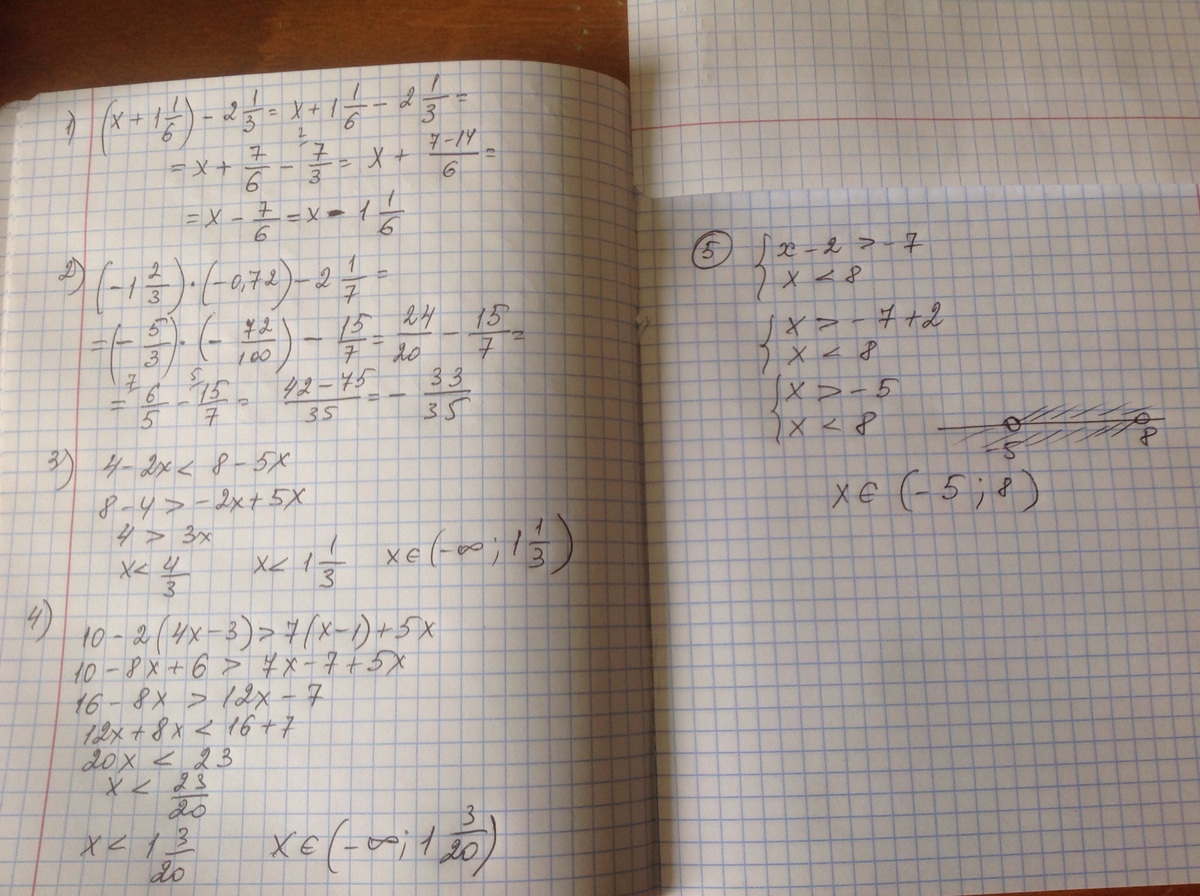 1) (x + 1 1/6) - 2 1/3 = x + 1 1/6 - 2 1/3 =
= x + 7/6 - 7/3 ² = x + (7-14)/6 =
= x - 7/6 = x - 1 1/6
2) (-1 2/3) · (-0,72) - 2 1/7 =
= (-5/3) · (-72/100) - 15/7 = 24/20 - 15/7 =
= ⁷ 6/5 - ⁵ 15/7 = (42-75)/35 = - 33/35
3) 4 - 2x < 8 - 5x
8 - 4 > -2x + 5x
4 > 3x
x < 4/3 x < 1 1/3 x ∈ (-∞; 1 1/3)
4) 10 - 2(4x - 3) > 7(x - 1) + 5x
10 - 8x + 6 > 7x - 7 + 5x
16 - 8x > 12x - 7
12x + 8x < 16 + 7
20x < 23
x < 23/20
x < 1 3/20 x ∈ (-∞; 1 3/20)
5 { x - 2 > -7
x < 8
{ x > -7 + 2
x < 8
{ x > -5
x < 8
-5 8
x ∈ (-5; 8)